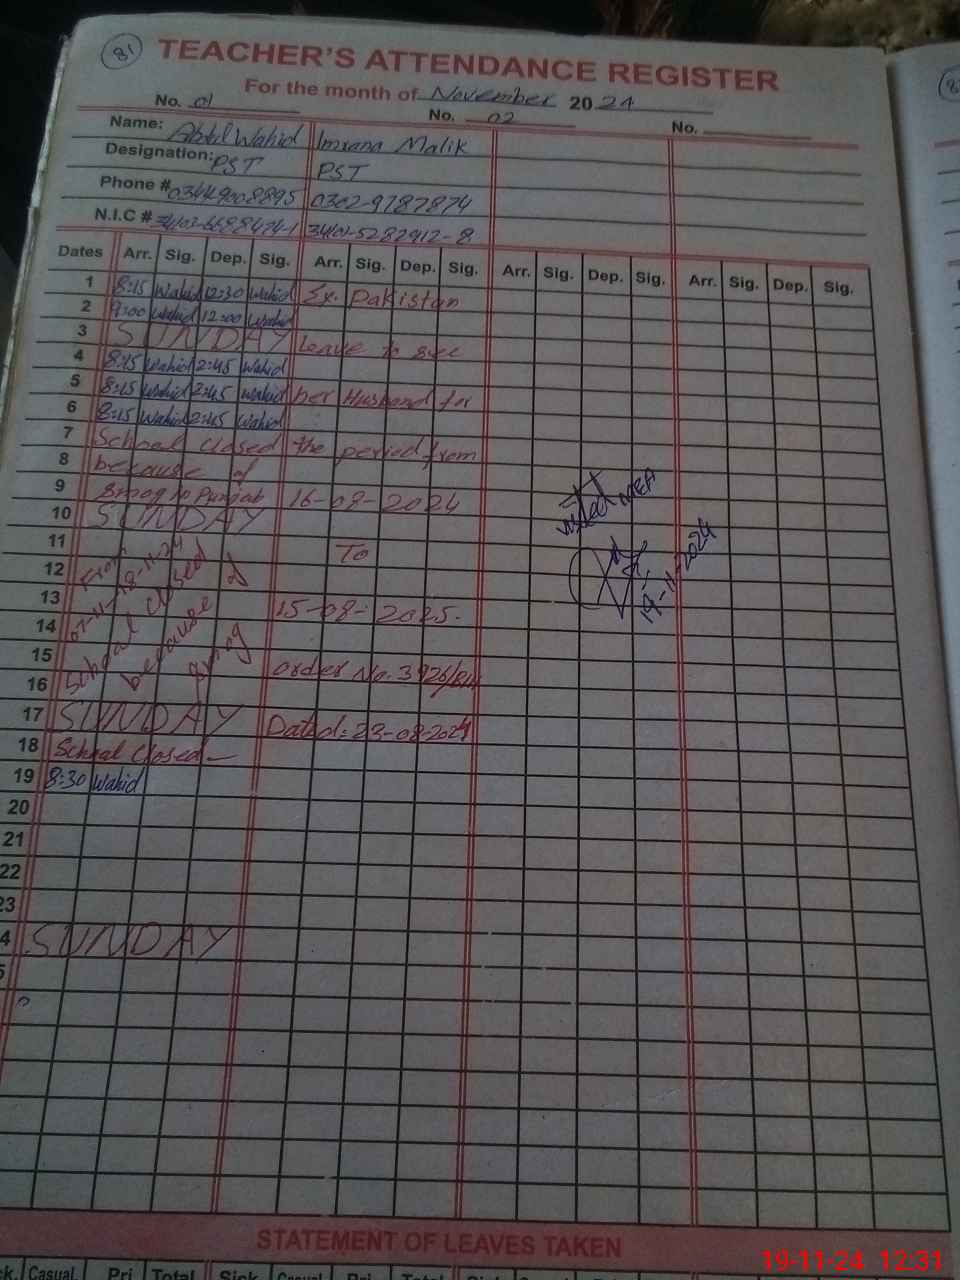 81
TEACHER'S ATTENDANCE REGISTER
For the month of November 2024
No. 01 No. 02 No.
Name: Abdul Wahid Imrana Malik
Designation: PST PST
Phone # 03449008895 0302-9787874
N.I.C # 34101-5282912-8
Dates Arr. Sig. Dep. Sig. Arr. Sig. Dep. Sig. Arr. Sig. Dep. Sig. Arr. Sig. Dep. Sig.
1 8:15 Wahid 12:30 Wahid Ex. Pakistan
2 9:00 Wahid 12:00 Wahid
3 SUNDAY Leave to see
4 8:15 Wahid 2:45 Wahid
5 8:15 Wahid 2:45 Wahid her Husband for
6 8:15 Wahid 2:45 Wahid
7 School closed the period from
8 because of
9 Smog in Punjab 16-08-2024
10 SUNDAY
11 To
12 From
13 07-11-18-11-24 15-08-2025.
14 School closed
15 because of
16 Smog order No. 3926/
17 SUNDAY Dated: 23-08-2024
18 School closed
19 8:30 Wahid
20
21
22
23
4 SUNDAY
5
visited MEA
19-11-2024
STATEMENT OF LEAVES TAKEN
ck. Casual. Pri Total Sick Casual Pri. Total
19-11-24 12:31